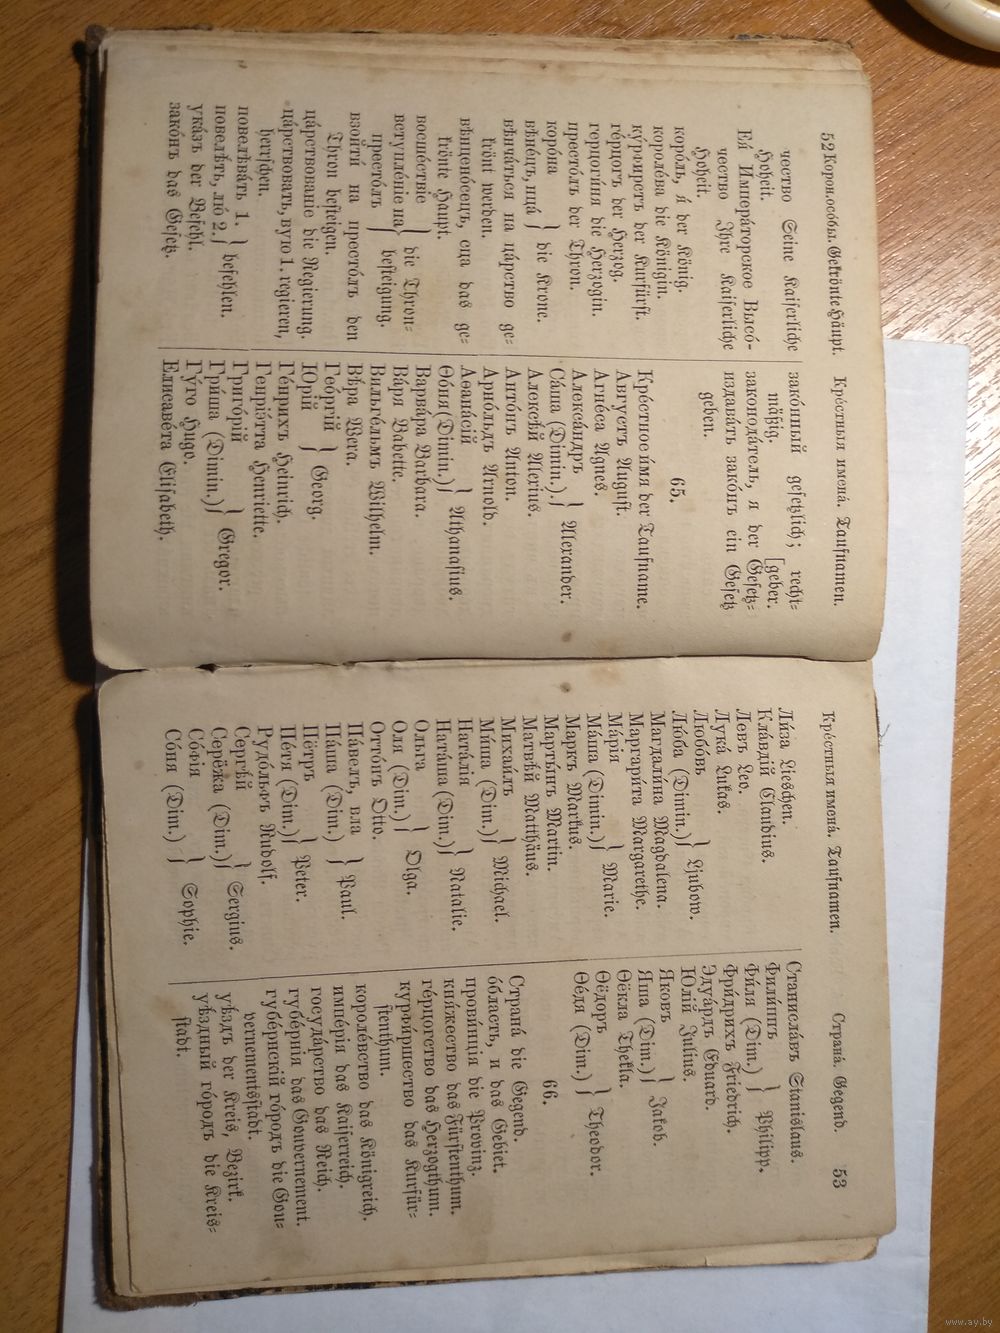 52 Корон. осо́бы. Gekrönte Häupt.
Кре́стныя имена́. Taufnamen.
чество Seine Kaiserliche
Hoheit.
Ея́ Импера́торское Высо́-
чество Ihre Kaiserliche
Hoheit.
коро́ль, я́ der König.
короле́ва die Königin.
ку́рфирстъ der Kurfürst.
ге́рцогъ der Herzog.
герцоги́ня die Herzogin.
престо́лъ der Thron.
коро́на
вѣне́цъ, нца́ } die Krone.
вѣнча́ться на ца́рство ge-
krönt werden.
вѣнцено́сецъ, сца das ge-
krönte Haupt.
восше́ствіе
вступле́ніе на
престо́лъ } die Thron-
besteigung.
взойти́ на престо́лъ den
Thron besteigen.
ца́рствованіе die Regierung.
ца́рствовать, вую 1. regieren,
herrschen.
повелѣва́ть 1.
повелѣ́ть, лю́ 2. } befehlen.
ука́зъ der Befehl.
зако́нъ das Gesetz.
зако́нный gesetzlich; recht-
mäßig. [geber.
законода́тель, я der Gesetz-
издава́ть зако́нъ ein Gesetz
geben.
65.
Кре́стное и́мя der Taufname.
А́вгустъ August.
Агне́са Agnes.
Алекса́ндръ
Са́ша (Dimin.) } Alexander.
Алексѣ́й Alexius.
Анто́нъ Anton.
Арно́льдъ Arnold.
Аѳана́сій
Ѳо́ня (Dimin.) } Athanasius.
Варва́ра Barbara.
Ва́ря Babette.
Вильге́льмъ Wilhelm.
Вѣ́ра Wera.
Гео́ргій
Ю́рій } Georg.
Ге́нрихъ Heinrich.
Генріе́тта Henriette.
Григо́рій
Гри́ша (Dimin.) } Gregor.
Гу́го Hugo.
Елисаве́та Elisabeth.
Кре́стныя имена́. Taufnamen.
Страна́. Gegend. 53
Ли́за Lieschen.
Кла́вдій Claudius.
Левъ Leo.
Лука́ Lukas.
Любо́вь
Лю́ба (Dimin.) } Ljubow.
Магдали́на Magdalena.
Маргари́та Margarethe.
Ма́рія
Ма́ша (Dimin.) } Marie.
Маркъ Markus.
Марты́нъ Martin.
Матвѣ́й Matthäus.
Михаи́лъ
Ми́ша (Dim.) } Michael.
Ната́лія
Ната́ша (Dim.) } Natalie.
Ольга
Оля (Dim.) } Olga.
Отто́нъ Otto.
Па́велъ, вла
Па́ша (Dim.) } Paul.
Пётръ
Пе́тя (Dim.) } Peter.
Рудо́льфъ Rudolf.
Серге́й
Серёжа (Dim.) } Sergius.
Со́фія
Со́ня (Dim.) } Sophie.
Станисла́въ Stanislaus.
Фили́ппъ
Фи́ля (Dim.) } Philipp.
Фри́дрихъ Friedrich.
Эдуа́рдъ Eduard.
Ю́лій Julius.
Яковъ
Яша (Dim.) } Jakob.
Ѳёкла Thekla.
Ѳёдоръ
Ѳе́дя (Dim.) } Theodor.
66.
Страна́ die Gegend.
о́бласть, и das Gebiet.
прови́нція die Provinz.
кня́жество das Fürstenthum.
ге́рцогство das Herzogthum.
курфи́ршество das Kurfür-
stenthum.
короле́вство das Königreich.
импе́рія das Kaiserreich.
госуда́рство das Reich.
губе́рнія das Gouvernement.
губе́рнскій го́родъ die Gou-
vernementsstadt.
уѣ́здъ der Kreis, Bezirk.
уѣ́здный го́родъ die Kreis-
stadt.
www.ay.by